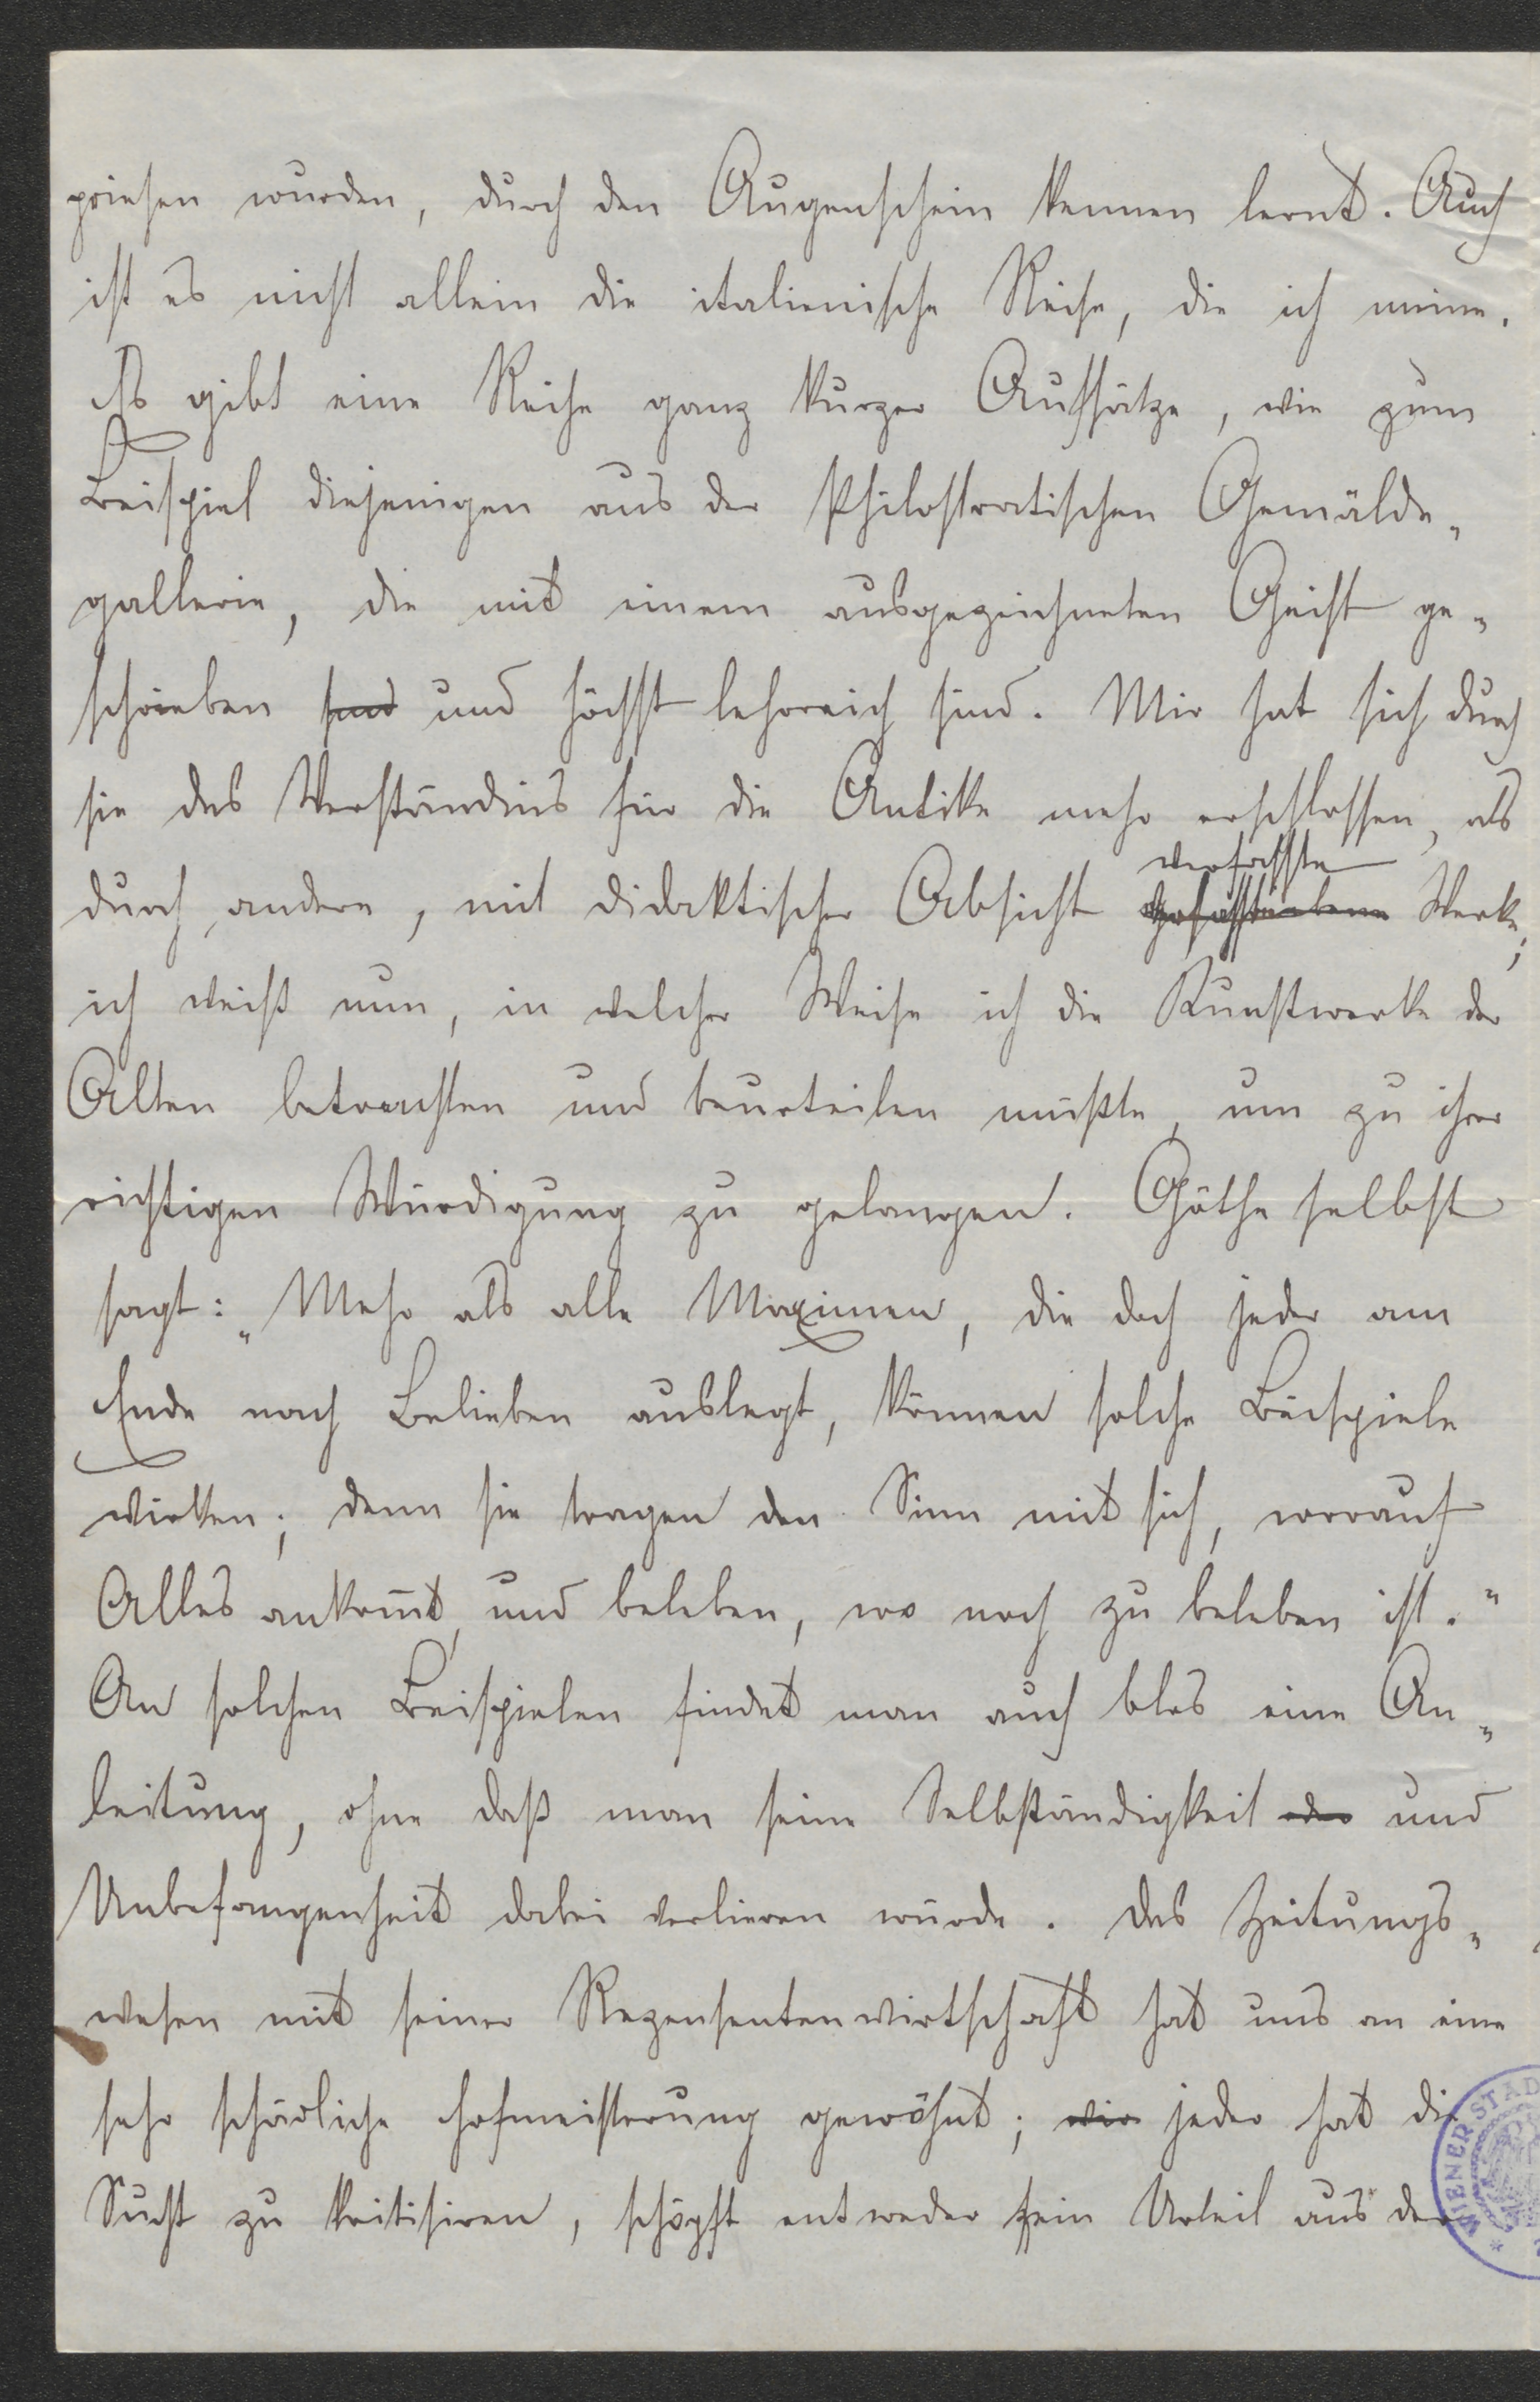 priesen wurden, durch den Augenschein kennen lernt. Auch
ist es nicht allein die italienische Reise, die ich meine.
Es gibt eine Reihe ganz kurzer Aufsätze, wie zum
Beispiel diejenigen aus der Philostratischen Gemälde„
gallerie, die mit einem ausgezeichneten Geist ge„
schrieben sind und höchst lehrreich sind. Mir hat sich durch
sie das Verständnis für die Antike mehr erschlossen, als
verfasste
durch andere, mit didaktischer Absicht Werke;
ich weiß nun, in welcher Weise ich die Kunstwerke der
Alten betrachten und beurteilen mußte, um zu ihrer
richtigen Würdigung zu gelangen. Göthe selbst
sagt: „Mehr als alle Maximen, die doch jeder am
Ende nach Belieben auslegt, können solche Beispiele
wirken; denn sie tragen den Sinn mit sich, worauf
Alles ankom̅t, und beleben, wo noch zu beleben ist."
An solchen Beispielen findet man auch blos eine An„
leitung, ohne daß man seine Selbständigkeit oder und
Unbefangenheit dabei verlieren würde. Das Zeitungs„
wesen mit seiner Rezensentenwirtschaft hat uns an eine
sehr schädliche Hofmeisterung gewöhnt; wir jeder hat die
Sucht zu kritisiren, schöpft entweder sein Urteil aus der
WIENER STAD